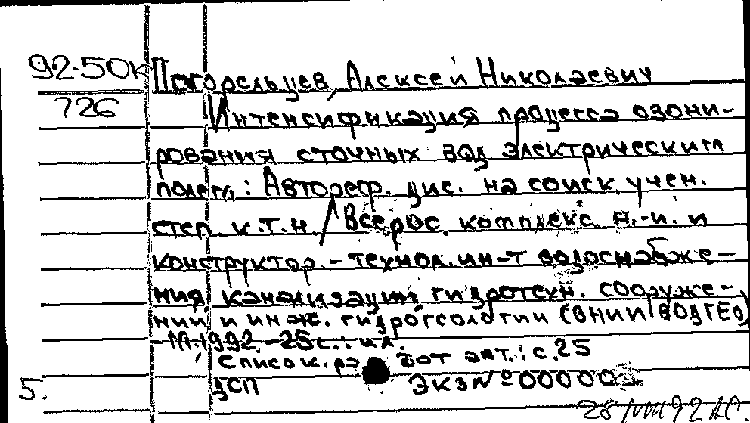 92-50к Погорельцев, Алексей Николаевич
726
Интенсификация процесса озони-
рования сточных вод электрическим
полем: Автореф. дис. на соиск. учен.
степ. к.т.н. / Всерос. комплекс. н.-и. и
конструктор.-технол. ин-т водоснабже-
ния, канализации, гидротехн. сооруже-
ний и инж. гидрогеологии (ВНИИ ВОДГЕО)
-М. 1992 -25 с.: ил.
Список. работ авт.: с. 25
5. ДСП ЭКЗ №
92